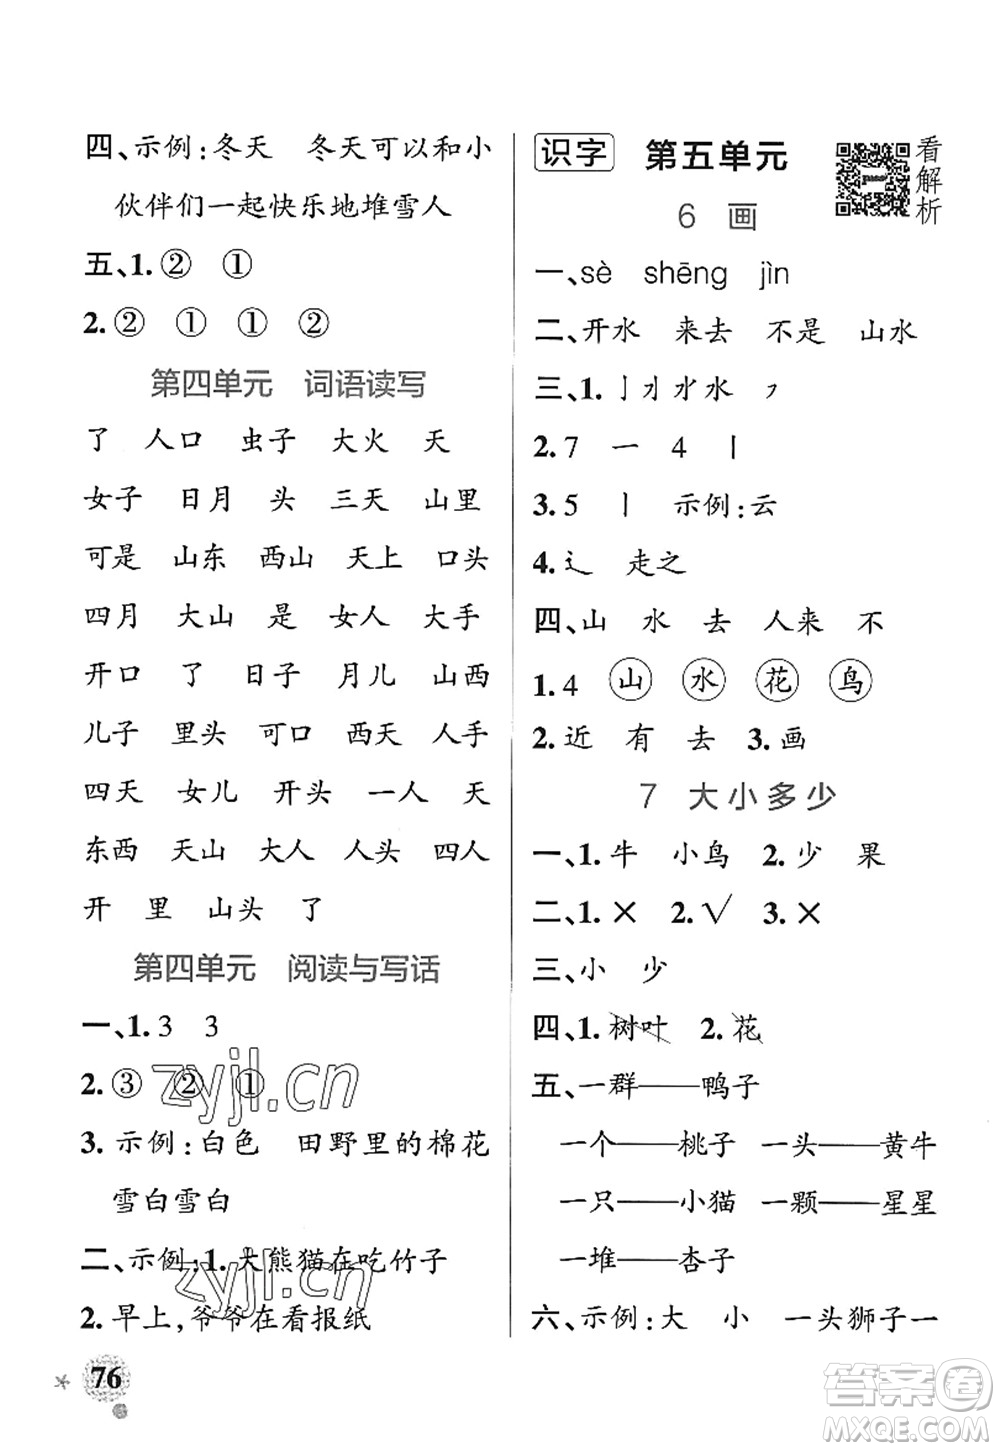 四、示例:冬天　冬天可以和小
伙伴们一起快乐地堆雪人
五、1.②　①
2.②　①　①　②
第四单元　词语读写
了　人口　虫子　大火　天
女子　日月　头　三天　山里
可是　山东　西山　天上　口头
四月　大山　是　女人　大手
开口　了　日子　月儿　山西
儿子　里头　可口　西天　人手
四天　女儿　开头　一人　天天
东西　天山　大人　人头　四人
开　里　山头　了
第四单元　阅读与写话
一、1.3　3
2.③　②　①
3.示例:白色　田野里的棉花
雪白雪白
二、示例:1.大熊猫在吃竹子
2.早上,爷爷在看报纸
76
识字　第五单元
看解析
6　画
一、sè　shēng　jìn
二、开水　来去　不是　山水
三、1.亅 刁 水 水　㇇
2.7　一　4　丨
3.5　丨　示例:云
4.辶　走之
四、山　水　去　人来　不
1.4　山　水　花　鸟
2.近　有　去　3.画
7　大小多少
一、1.牛　小鸟　2.少　果
二、1.×　2.√　3.×
三、小　少
四、1.树叶　2.花
五、一群——鸭子
一个——桃子　一头——黄牛
一只——小猫　一颗——星星
一堆——杏子
六、示例:大　小　一头狮子一
zyjl.cn
zyjl.cn
答案圈
MXQE.COM